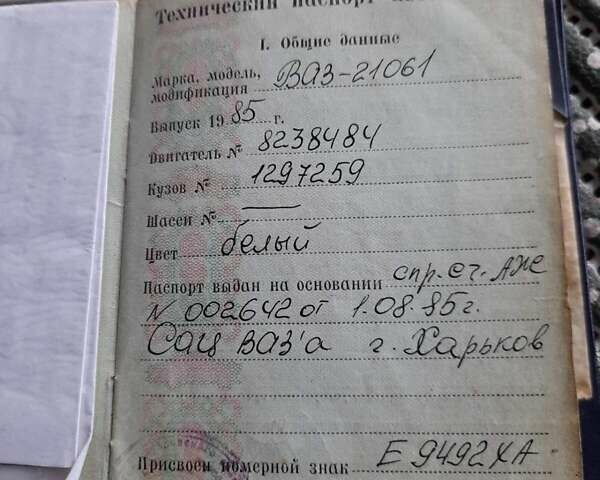 Технический паспорт
I. Общие данные
Марка, модель, ВАЗ-21061
модификация
Выпуск 1985 г.
Двигатель № 8238484
Кузов № 1297259
Шасси № —
Цвет белый
Паспорт выдан на основании спр. сч. АЖ
N 002642 от 1.08.85г.
Сац ВАЗ'а г. Харьков
Присвоен номерной знак Е 9492 ХА